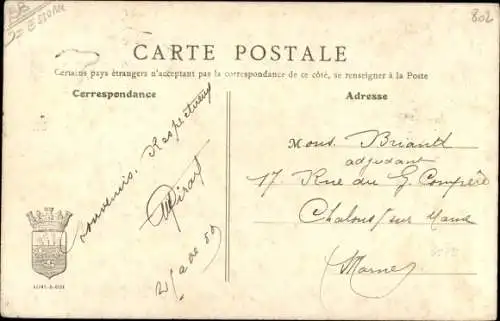 802
ESSONNE
CARTE POSTALE
Certains pays étrangers n'acceptant pas la correspondance de ce côté, se renseigner à la Poste
Correspondance
Adresse
Souvenirs. Respectueux
Mons. Briault
adjudant
17 Rue du G. Compère
Chalons/sur Marne
Marne